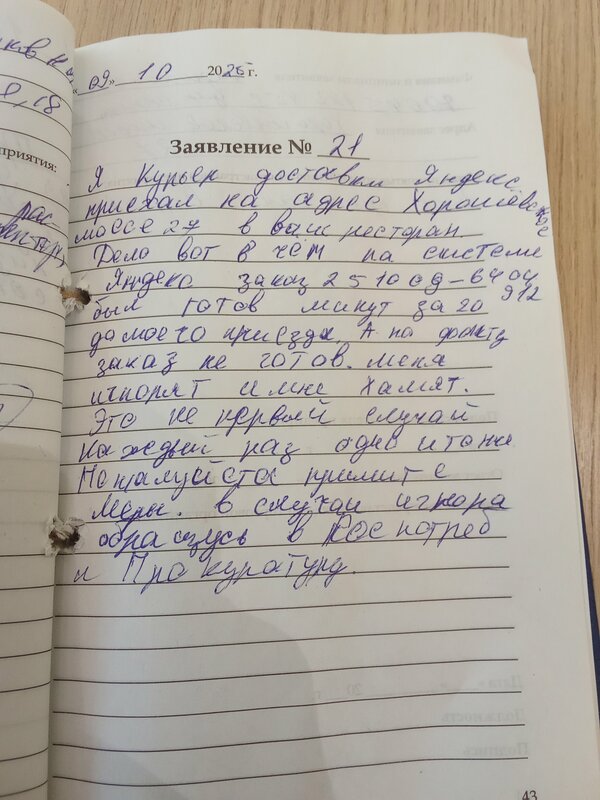 «09» 10 2025 г.
Заявление № 21
Я Курьер доставки Яндекс
приехал на адрес Хорошевское
шоссе 27 в ваш ресторан
Дело вот в чём по системе
Яндекс заказ 251009-6404
912
был готов минут за 20
до моего приезда. А по факту
заказ не готов. меня
игнорят и мне хамят.
Это не первый случай
каждый раз одно и тоже
Пожалуйста примите
меры. в случаи игнора
обращусь в Роспотреб
и Прокуратуру.
8,18
приятия:
43